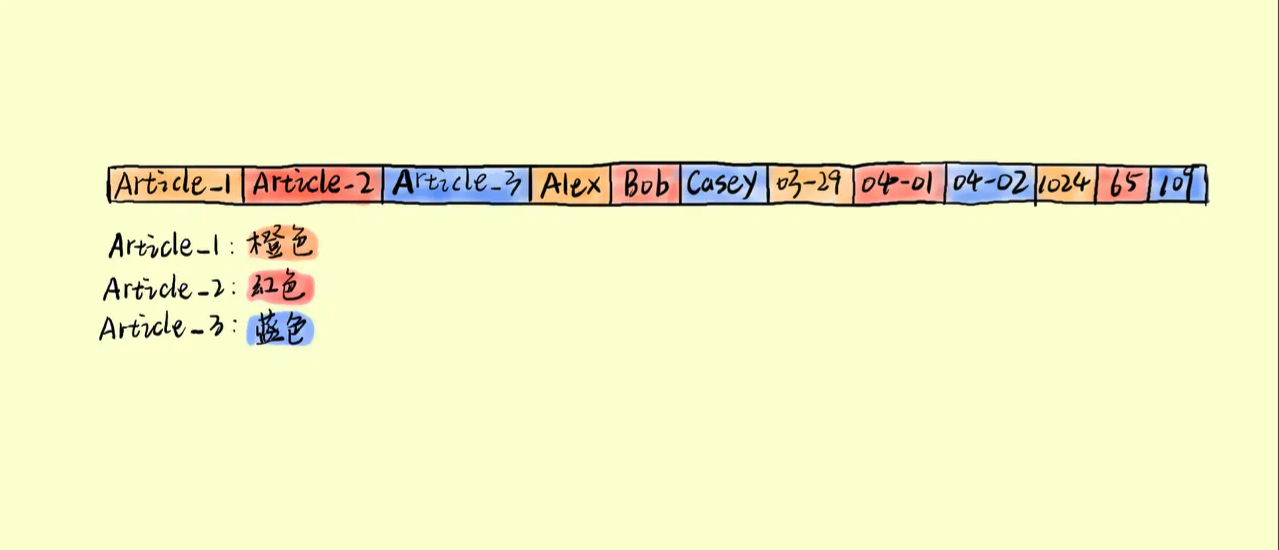 Article_1 Article-2 Article_3 Alex Bob Casey 03-29 04-01 04-02 1024 65 109
Article_1: 橙色
Article_2: 红色
Article_3: 蓝色